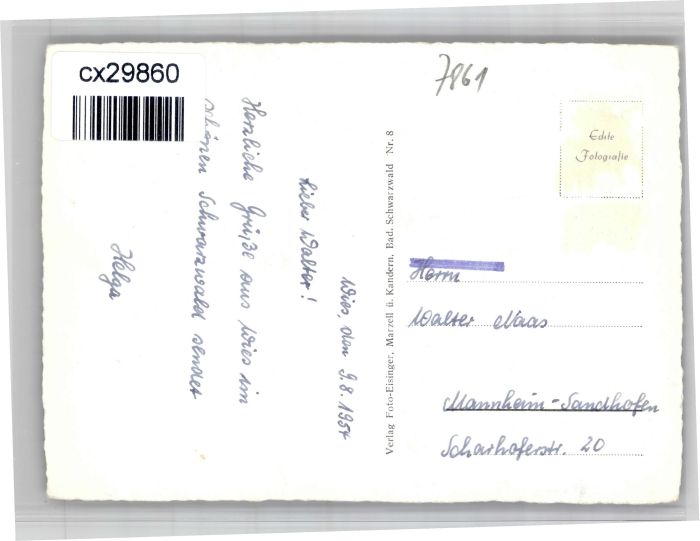 cx29860
7861
Echte
Fotografie
Wies, den 9.8.1954
Lieber Walter!
Herzliche Grüße aus Wies im
schönen Schwarzwald sendet
Helga
Verlag Foto-Eisinger, Marzell ü. Kandern, Bad. Schwarzwald Nr. 8
Herrn
Walter Maas
Mannheim-Sandhofen
Scharhoferstr. 20